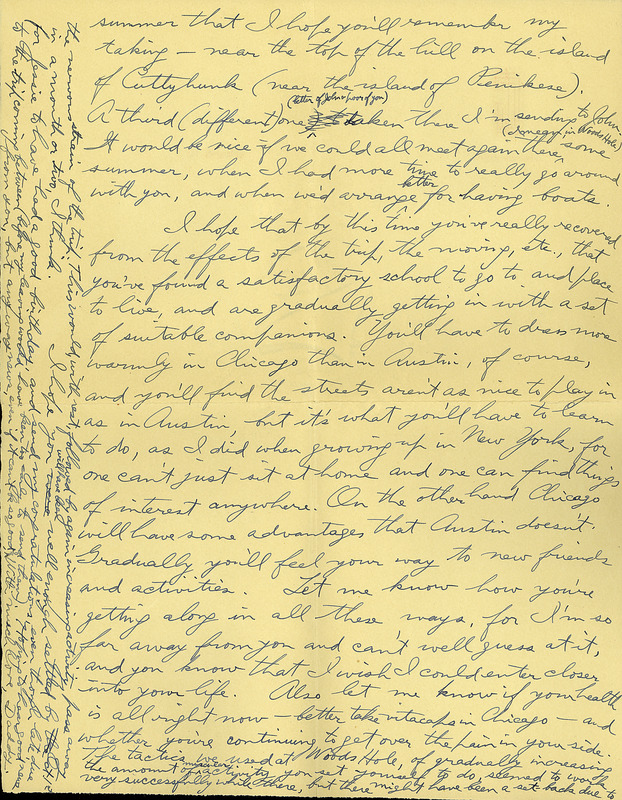 summer that I hope you'll remember my
taking – near the top of the hill on the island
of Cuttyhunk (near the island of Penikese).
(better of John & poor of you)
A third (different) one taken there I'm sending to John.
(I mean, in Woods Hole)
It would be nice if we could all meet again there, some
summer, when I had more time to really go around
with you, and when we'd arrange better for having boats.
I hope that by this time you've really recovered
from the effects of the trip, the moving, etc., that
you've found a satisfactory school to go to and place
to live, and are gradually getting in with a set
of suitable companions. You'll have to dress more
warmly in Chicago than in Austin, of course,
and you'll find the streets aren't as nice to play in
as in Austin, but it's what you'll have to learn
to do, as I did when growing up in New York, for
one can't just sit at home and one can find things
of interest anywhere. On the other hand Chicago
will have some advantages that Austin doesn't.
Gradually you'll feel your way to new friends
and activities. Let me know how you're
getting along in all these ways, for I'm so
far away from you and can't well guess at it,
and you know that I wish I could enter closer
into your life. Also let me know if your health
is all right now – better take vitacaps in Chicago – and
whether you're continuing to get over the pain in your side.
The tactics we used at Woods Hole, of gradually increasing
the amount of activity you set yourself to do, seemed to work
very successfully while there, but there might have been a set back due to
the nervous strain of the trip. This would, with rest followed by again increasing activity, pass away
in a month or two, I think. I hope you will have been well enough settled by Oct.
for Jessie to have had a good birthday and send my congratulations even though late due
to the trip coming between before my leaving would have been in time to send them. Happy to hear good news
from you, but anyway have
Much love Daddy.